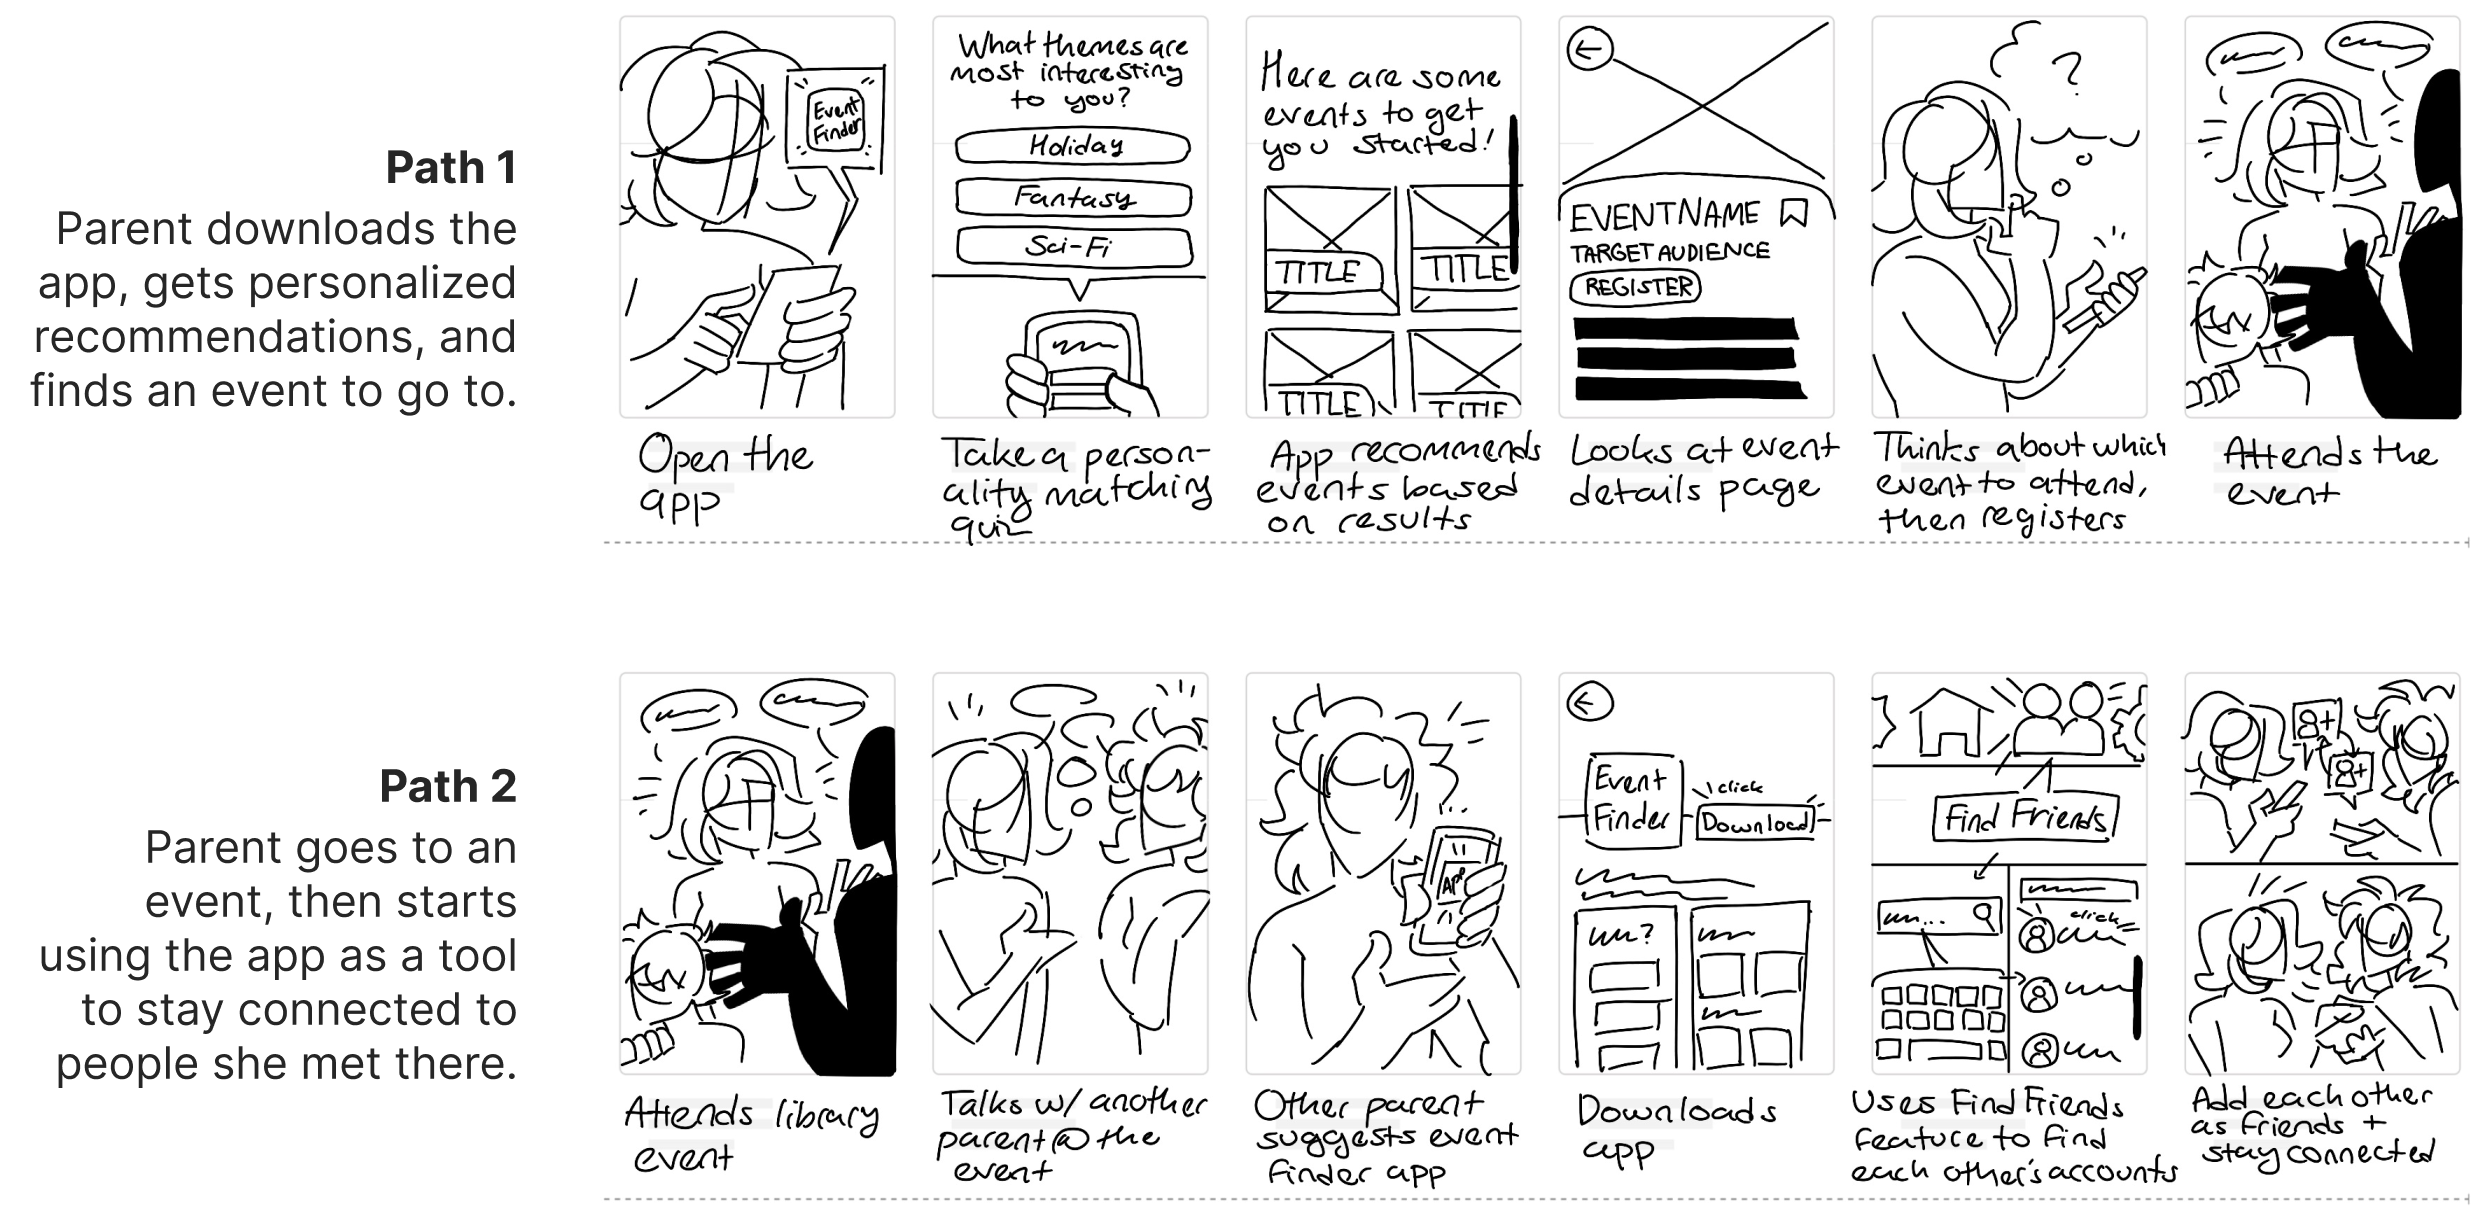 Path 1
Parent downloads the
app, gets personalized
recommendations, and
finds an event to go to.
Event
Finder
Open the
app
What themes are
most interesting
to you?
Holiday
Fantasy
Sci-Fi
Take a person-
ality matching
quiz
Here are some
events to get
you started!
TITLE
TITLE
TITLE
TITLE
App recommends
events based
on results
EVENT NAME
TARGET AUDIENCE
REGISTER
Looks at event
details page
?
Thinks about which
event to attend,
then registers
Attends the
event
Path 2
Parent goes to an
event, then starts
using the app as a tool
to stay connected to
people she met there.
Attends library
event
Talks w/ another
parent @ the
event
APP
Other parent
suggests event
finder app
Event
Finder
click
Download
?
Downloads
app
Find Friends
...
click
Uses Find Friends
feature to find
each other's accounts
+
+
Add each other
as friends +
stay connected